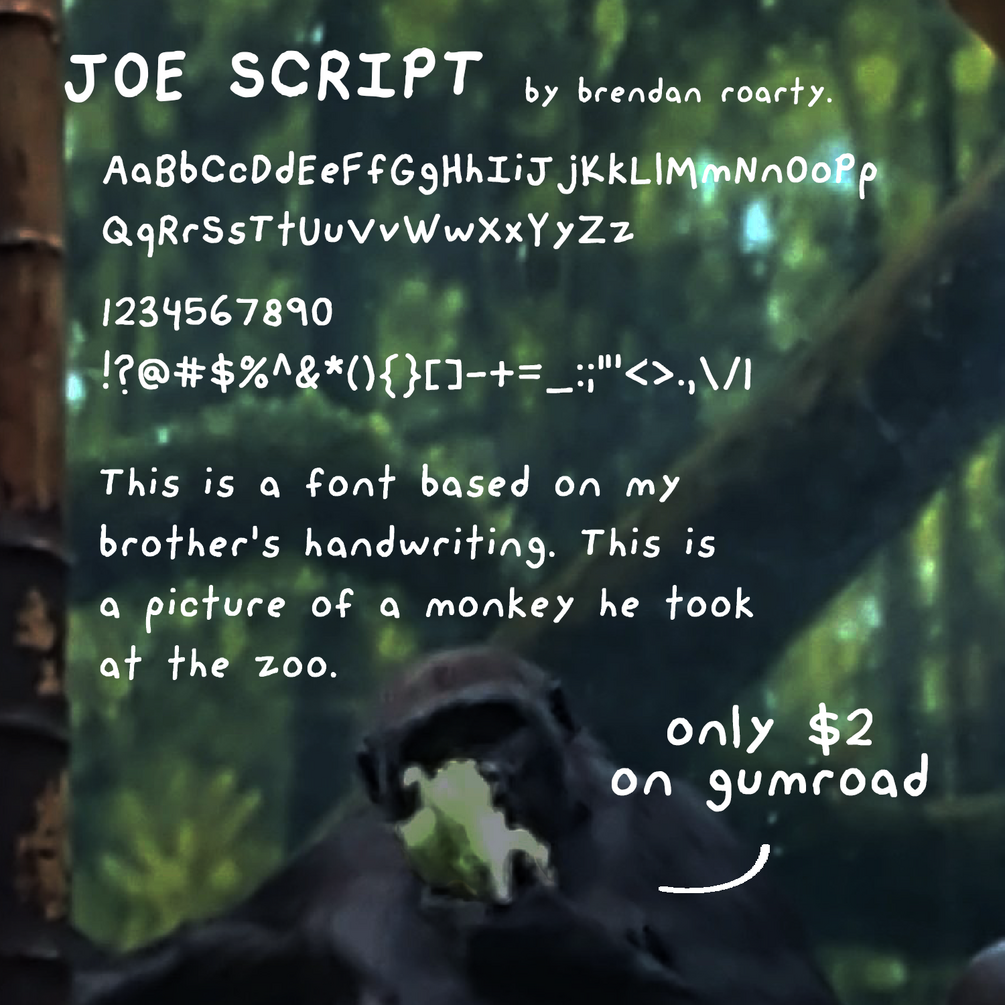 JOE SCRIPT by brendan roarty.
AaBbCcDdEeFfGgHhIiJjKkLlMmNnOoPp
QqRrSsTtUuVvWwXxYyZz
1234567890
!?@#$%^&*(){}[]-+=_:;"'<>.,\/|
This is a font based on my
brother's handwriting. This is
a picture of a monkey he took
at the zoo.
only $2
on gumroad